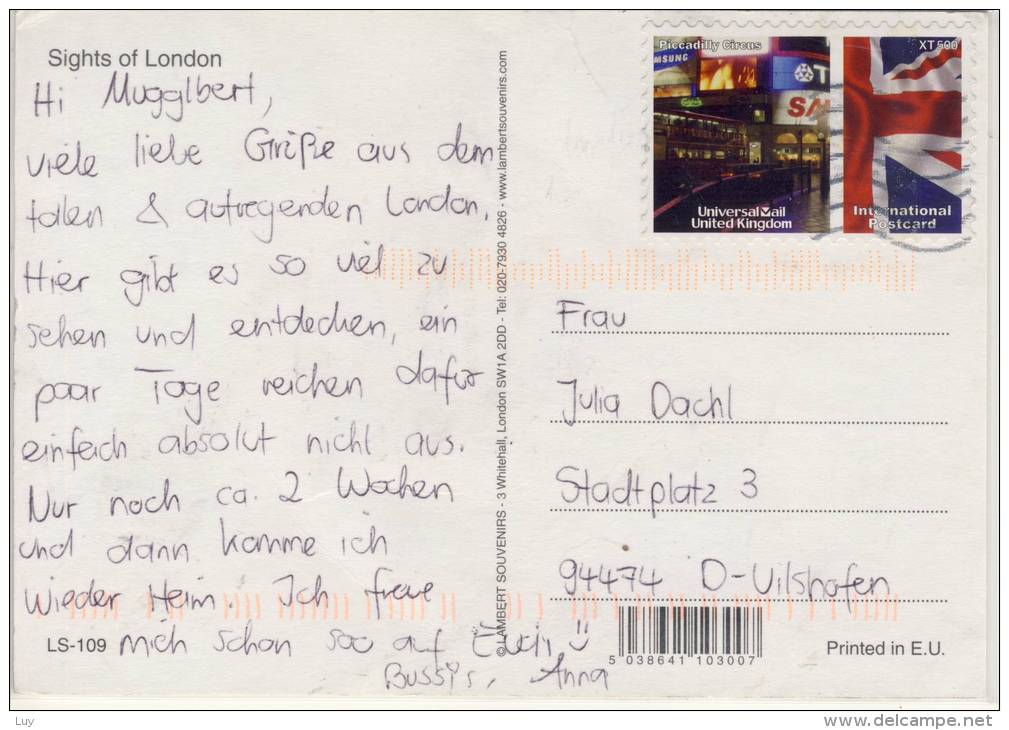 Sights of London
Hi Mugglbert,
viele liebe Grüße aus dem
tollen & aufregenden London.
Hier gibt es so viel zu
sehen und entdecken, ein
paar Tage reichen dafür
einfach absolut nicht aus.
Nur noch ca. 2 Wochen
und dann komme ich
wieder Heim. Ich freue
mich schon soo auf Euch
Bussi's, Anna
LS-109
©LAMBERT SOUVENIRS - 3 Whitehall, London SW1A 2DD - Tel: 020-7930 4826 - www.lambertsouvenirs.com
Piccadilly Circus
XT500
SAMSUNG
Carlsberg
UniversalMail
United Kingdom
International
Postcard
Frau
Julia Dachl
Stadtplatz 3
94474 D-Vilshofen
5 038641 103007
Printed in E.U.
Luy
delcampe.net